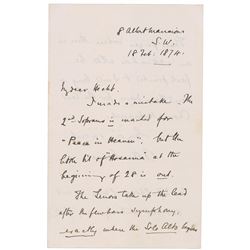 8 Albert Mansions
S.W.
18 Feb. 1874.
My dear Hecht.
I made a mistake. The
2nd Soprano is marked for
"Peace in Heaven"; but the
little bit of "Hosanna" at the
beginning of 28 is out.
The Tenors take up the lead
after the few bars symphony,
exactly when the Solo Alto begins